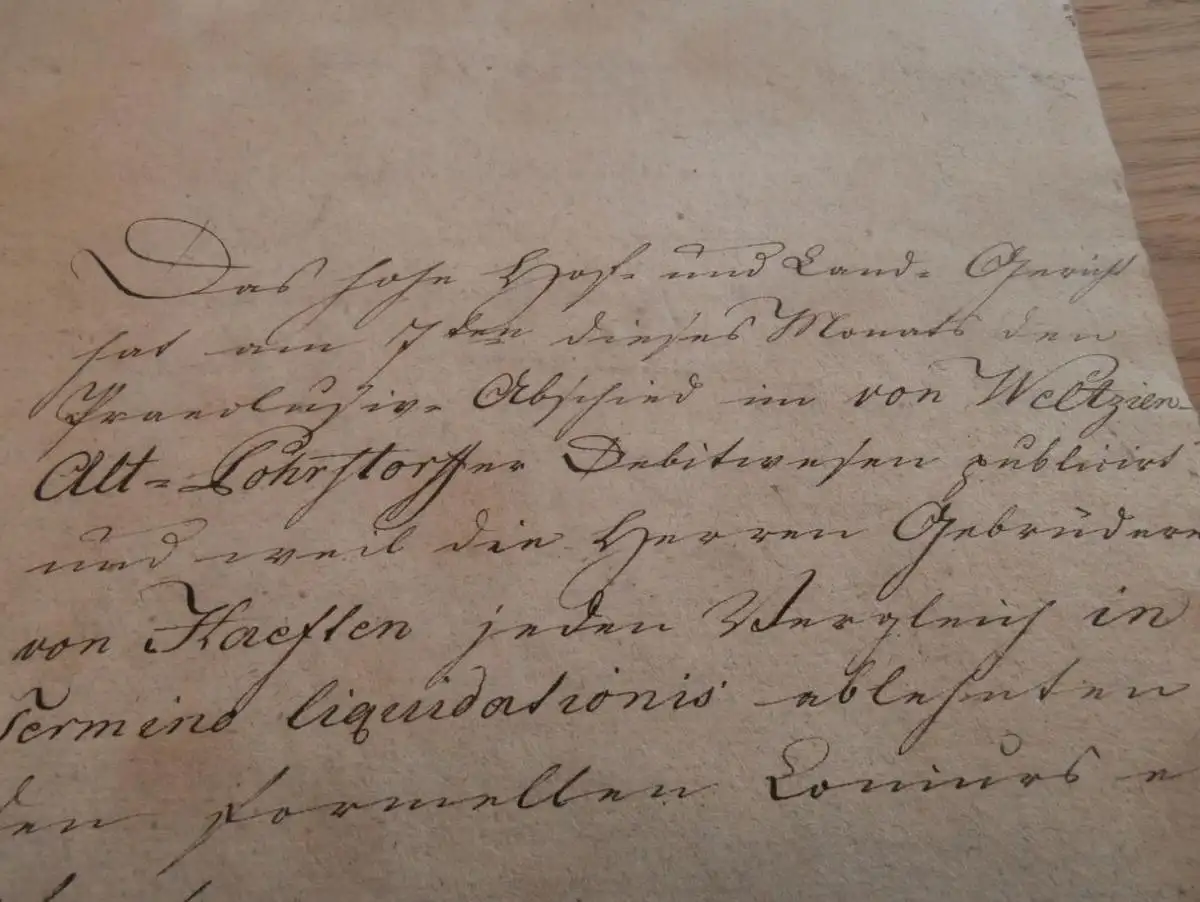 Das hohe Hof- und Land- Gericht
hat am 7ten dieses Monats den
Praeclusiv- Abschied im von Weltzien-
Alt-Pohrstorffer Debitwesen publicirt
und weil die Herren Gebrüdere
von Haeften jeden Vergleich in
Termino liquidationis ablehnten
den formellen Concurs e